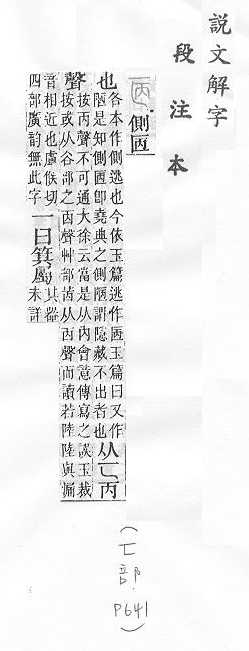 說文解字
段注本
側匿
也
各本作側逃也今依玉篇逃作匿玉篇曰又作
陋是知側匿卽堯典之側陋謂隱藏不出者也
从匸丙
聲
按丙聲不可通大徐云當是从內會意傳寫之誤玉裁
按或从谷部之㐁聲艸部茵从㐁聲而讀若陸陸與漏
音相近也盧候切
四部廣韵無此字
一曰箕屬
其器
未詳
(匸部 P641)